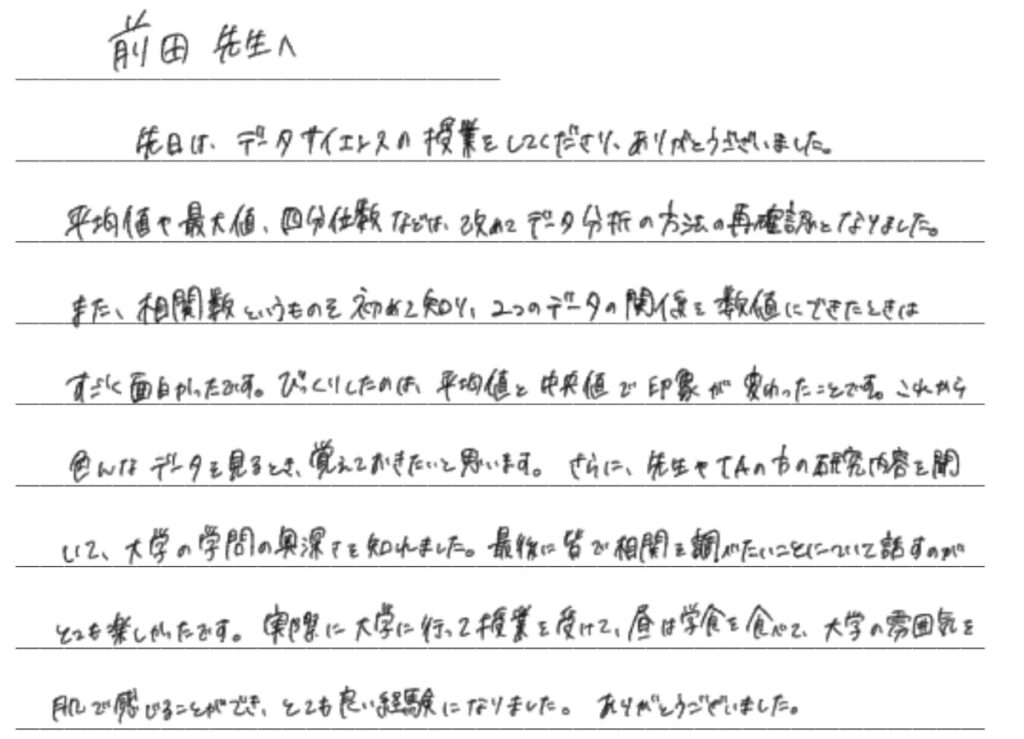 前田 先生へ
先日は、データサイエンスの授業をしてくださり、ありがとうございました。
平均値や最大値、四分位数などは、改めてデータ分析の方法の再確認となりました。
また、相関数というものを初めて知り、2つのデータの関係を数値にできたときは
すごく面白かったです。びっくりしたのは、平均値と中央値で印象が変わったことです。これから
色んなデータを見るとき、覚えておきたいと思います。さらに、先生やTAの方の研究内容を聞
いて、大学の学問の奥深さを知れました。最後に皆で相関を調べたいことについて話すのが
とても楽しかったです。実際に大学に行って授業を受けて、昼は学食を食べて、大学の雰囲気を
肌で感じることができ、とても良い経験になりました。ありがとうございました。